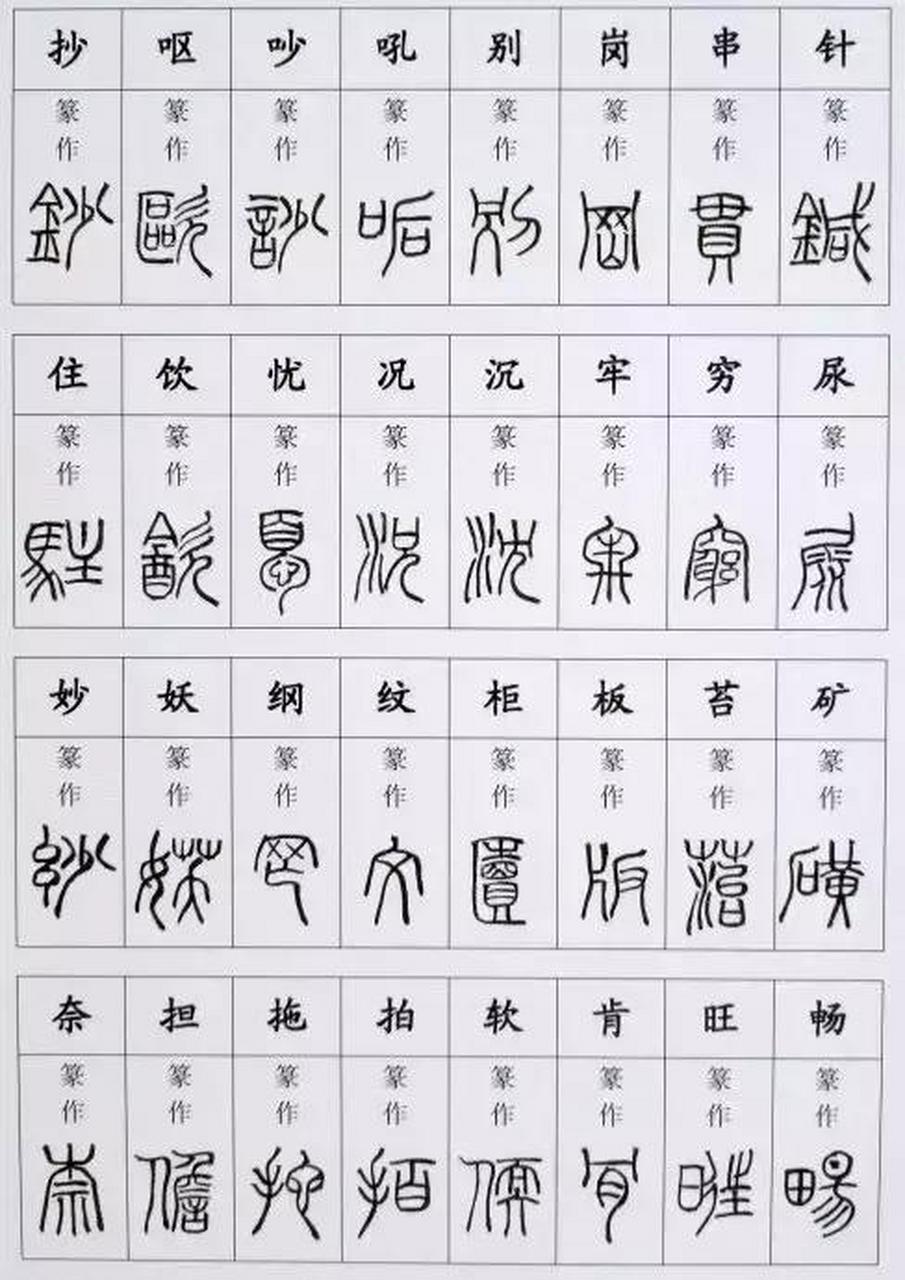 抄 呕 吵 吼 别 岗 串 针
篆 篆 篆 篆 篆 篆 篆 篆
作 作 作 作 作 作 作 作
鈔 歐 訬 㖃 別 岡 貫 鍼
住 饮 忧 况 沉 牢 穷 尿
篆 篆 篆 篆 篆 篆 篆 篆
作 作 作 作 作 作 作 作
駐 㱃 況 沈 牢 窮 尿
妙 妖 纲 纹 柜 板 苔 矿
篆 篆 篆 篆 篆 篆 篆 篆
作 作 作 作 作 作 作 作
文 匱 版 菭 磺
奈 担 拖 拍 软 肯 旺 畅
篆 篆 篆 篆 篆 篆 篆 篆
作 作 作 作 作 作 作 作
柰 儋 拕 偄 肎 暀 畼